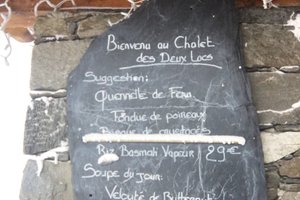 Bienvenu au Chalet
des Deux Lacs
Suggestion:
Quennelle de Fera
Fondue de poireaux
Bisque de crustacés
Riz Basmati Vapeur 29€
Soupe du jour:
Velouté de Butternut